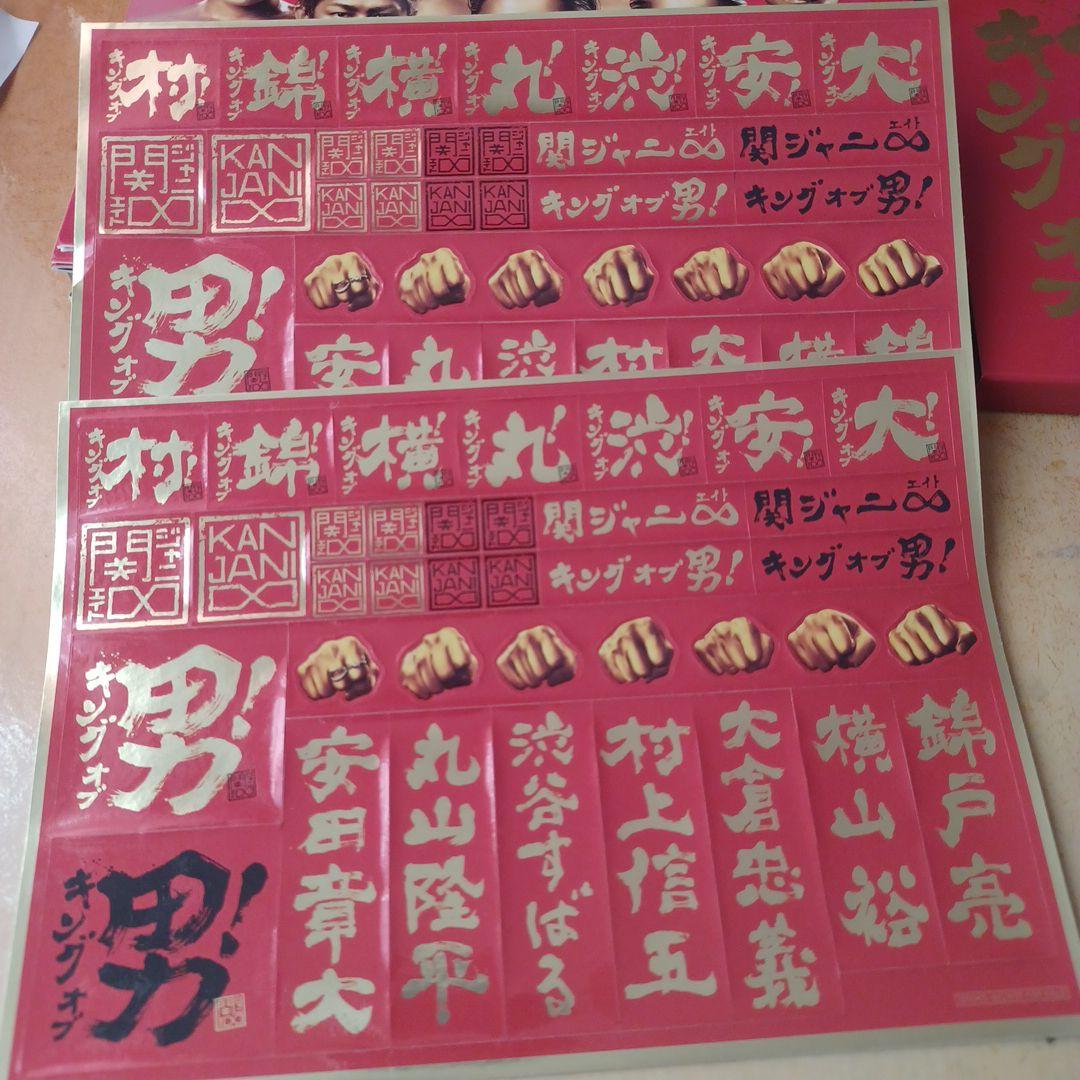 キングオブ
キングオブ 村!
キングオブ 錦!
キングオブ 横!
キングオブ 丸!
キングオブ 渋!
キングオブ 安!
キングオブ 大!
関ジャニエイト
KAN
JANI
関ジャニ∞ エイト
関ジャニ∞ エイト
KAN
JANI
KAN
JANI
KAN
JANI
KAN
JANI
キングオブ男!
キングオブ男!
キングオブ 男!
安
丸
渋
村
大
横
錦
キングオブ 村!
キングオブ 錦!
キングオブ 横!
キングオブ 丸!
キングオブ 渋!
キングオブ 安!
キングオブ 大!
関ジャニエイト
KAN
JANI
関ジャニ∞ エイト
関ジャニ∞ エイト
KAN
JANI
KAN
JANI
KAN
JANI
KAN
JANI
キングオブ男!
キングオブ男!
キングオブ 男!
キングオブ 男!
安田章大
丸山隆平
渋谷すばる
村上信五
大倉忠義
横山裕
錦戸亮